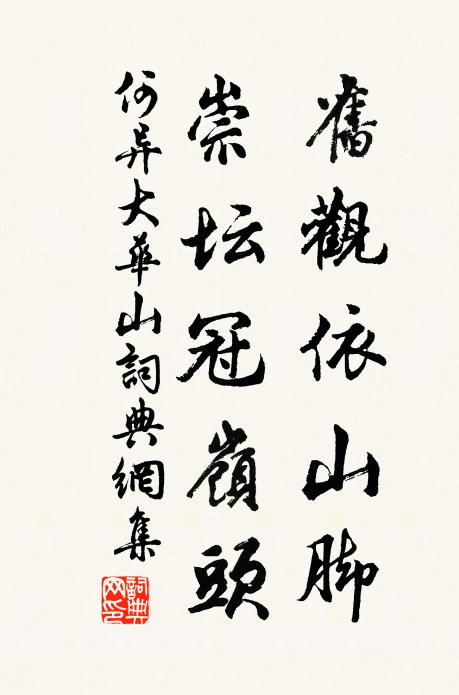 舊觀依山脚
崇坛冠嶺頭
何异大華山詞典網集
詞典网印